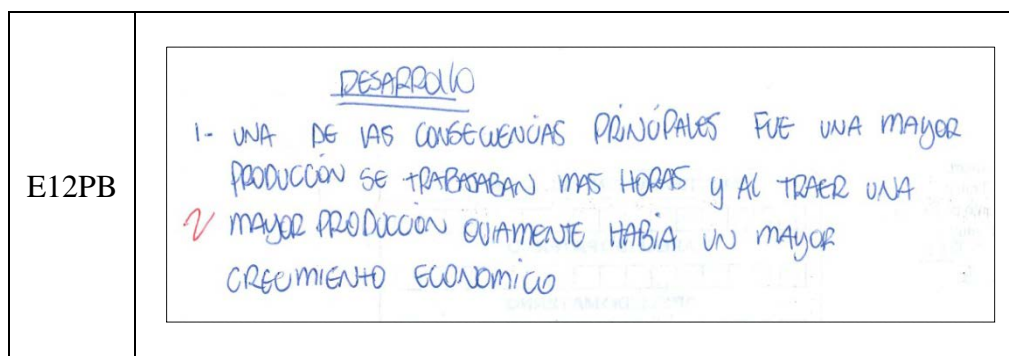 E12PB
DESARROLLO
1- UNA DE LAS CONSECUENCIAS PRINCIPALES FUE UNA MAYOR
PRODUCCIÓN SE TRABAJABAN MAS HORAS Y AL TRAER UNA
MAYOR PRODUCCION OVIAMENTE HABÍA UN MAYOR
CRECIMIENTO ECONOMICO